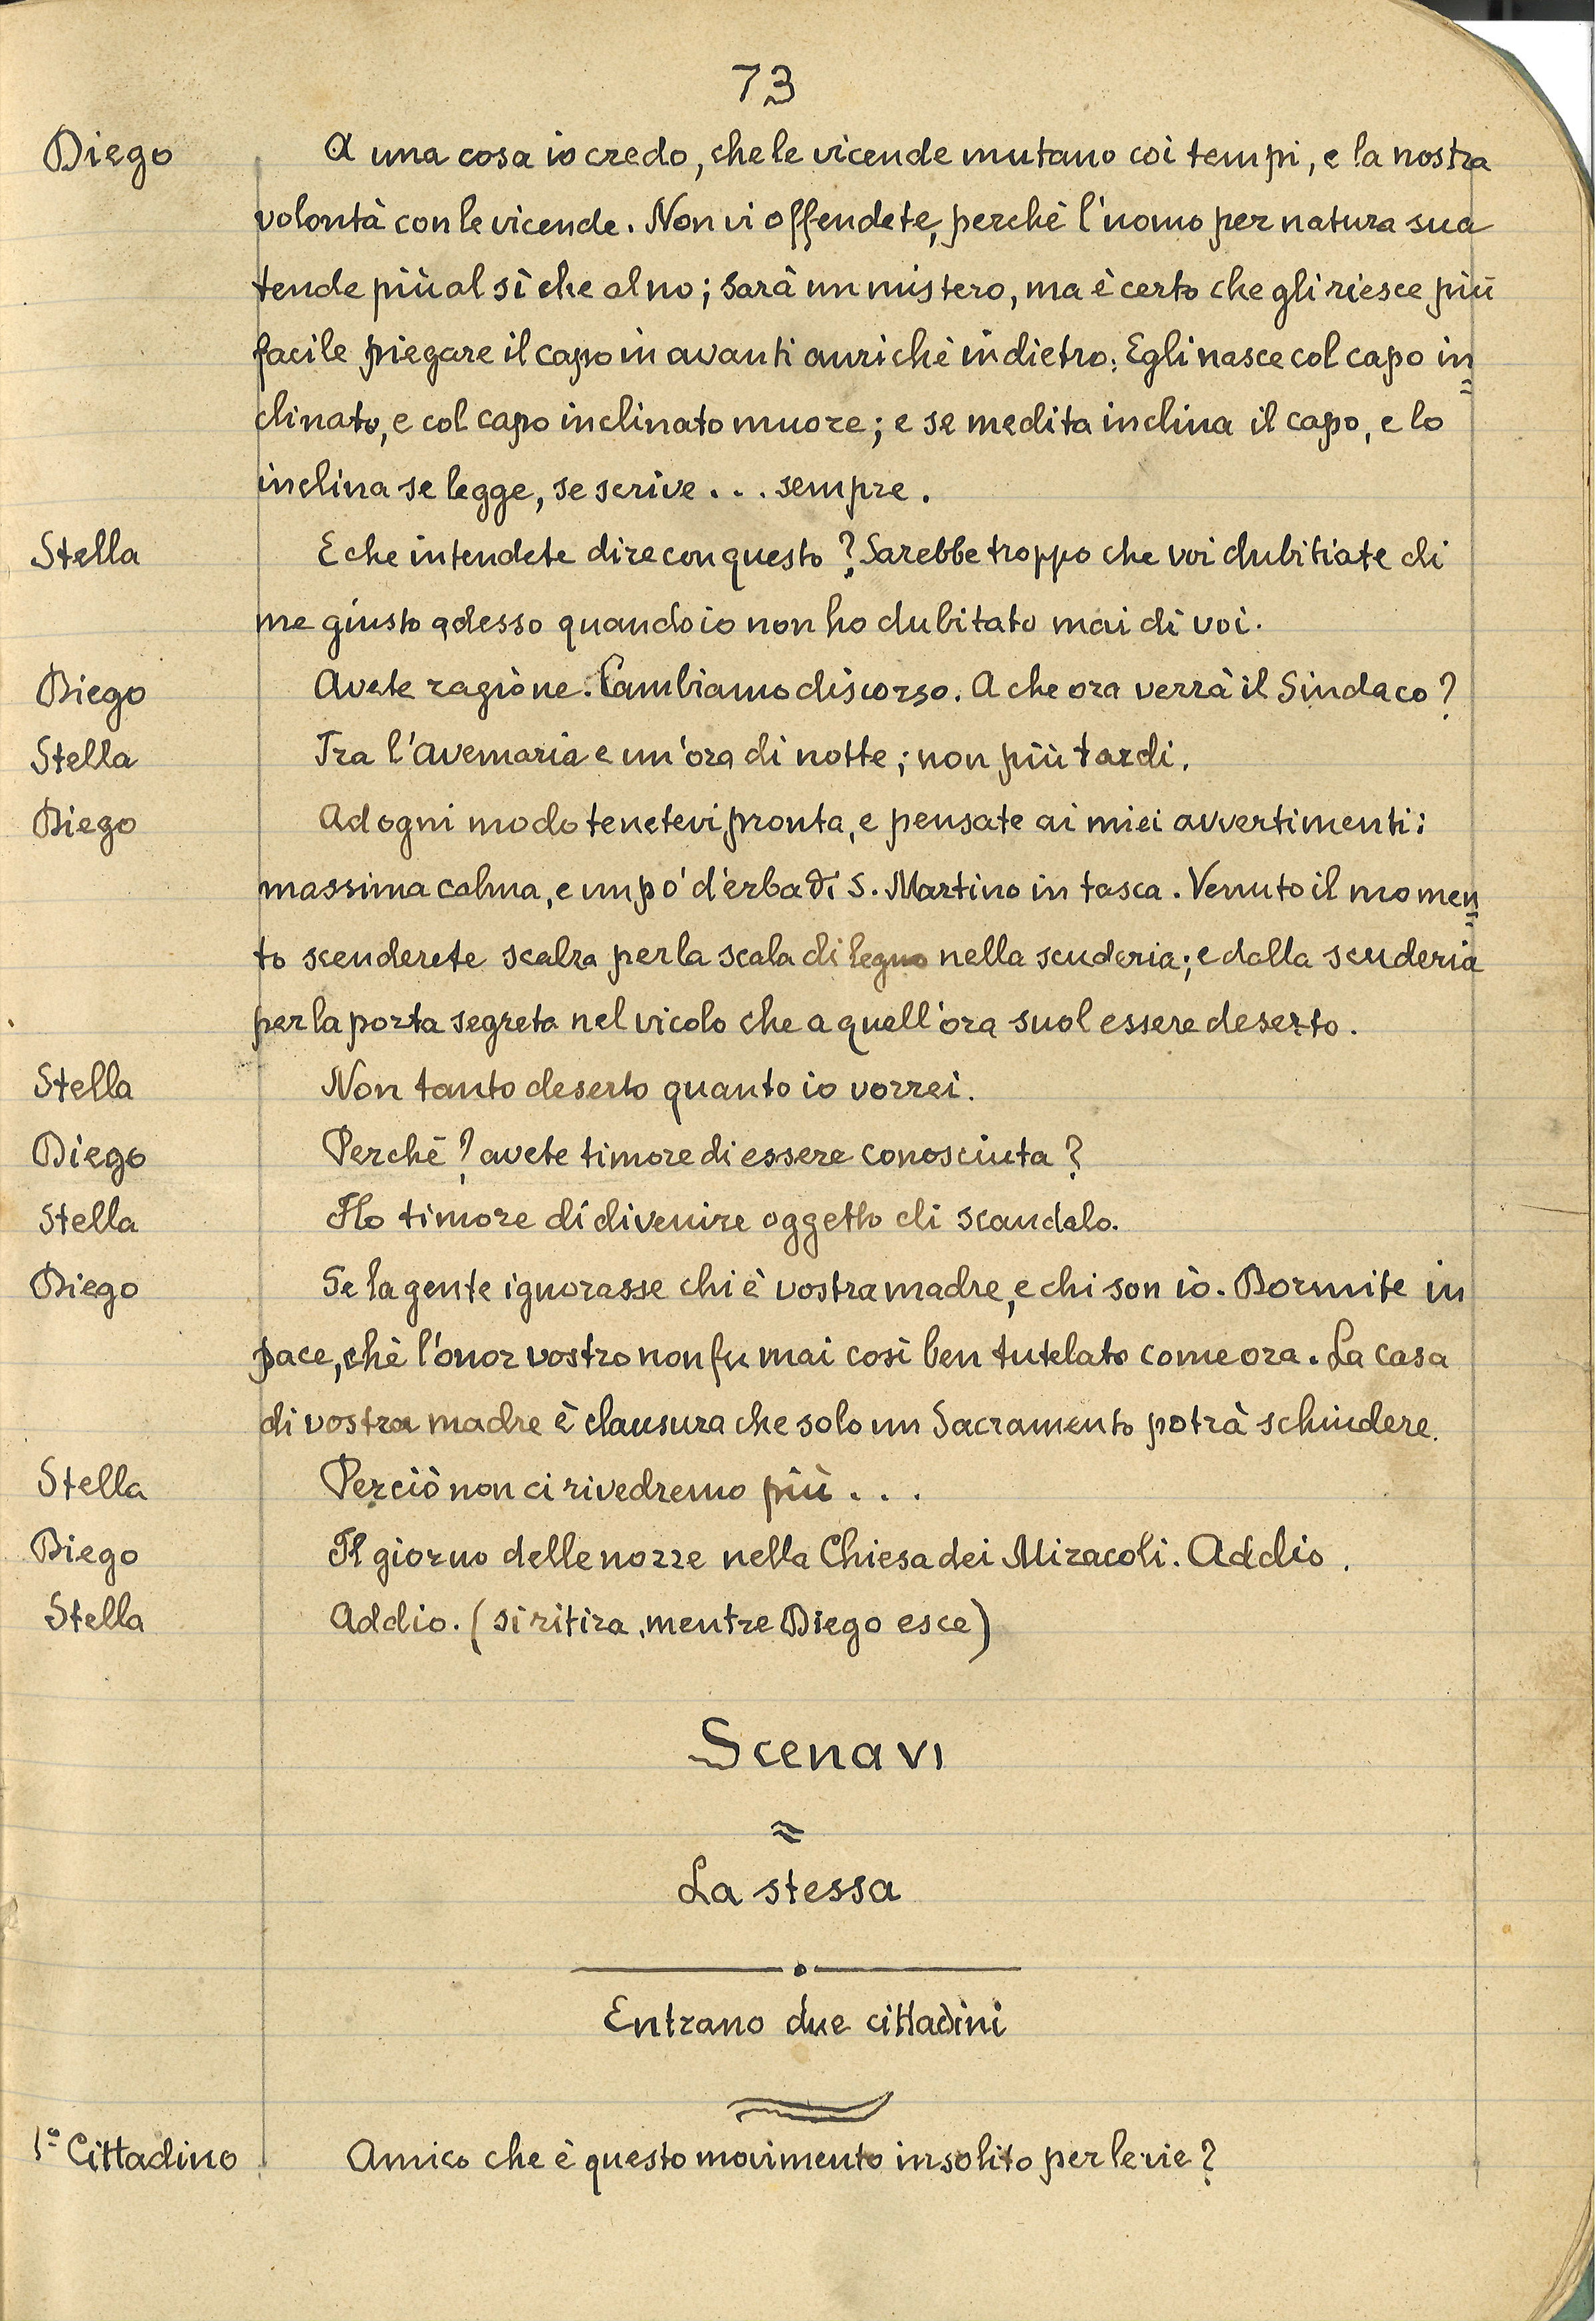 73
Diego A una cosa io credo, che le vicende mutano coi tempi, e la nostra
volontà con le vicende. Non vi offendete, perchè l'uomo per natura sua
tende più al sì che al no; sarà un mistero, ma è certo che gli riesce più
facile piegare il capo in avanti anzichè indietro. Egli nasce col capo in=
clinato, e col capo inclinato muore; e se medita inclina il capo, e lo
inclina se legge, se scrive... sempre.
Stella E che intendete dire con questo? Sarebbe troppo che voi dubitiate di
me giusto adesso quando io non ho dubitato mai di voi.
Diego Avete ragione. Cambiamo discorso. A che ora verrà il Sindaco?
Stella Tra l'avemaria e un'ora di notte; non più tardi.
Diego Ad ogni modo tenetevi pronta, e pensate ai miei avvertimenti:
massima calma, e un pò d'erba di S. Martino in tasca. Venuto il momen=
to scenderete scalza per la scala di legno nella scuderia; e dalla scuderia
per la porta segreta nel vicolo che a quell'ora suol essere deserto.
Stella Non tanto deserto quanto io vorrei.
Diego Perchè? avete timore di essere conosciuta?
Stella Ho timore di divenire oggetto di scandalo.
Diego Se la gente ignorasse chi è vostra madre, e chi son io. Dormite in
pace, chè l'onor vostro non fu mai così ben tutelato come ora. La casa
di vostra madre è clausura che solo un Sacramento potrà schiudere.
Stella Perciò non ci rivedremo più...
Diego Il giorno delle nozze nella Chiesa dei Miracoli. Addio.
Stella Addio. (si ritira, mentre Diego esce)
Scena VI
La stessa
Entrano due cittadini
1º Cittadino Amico che è questo movimento insolito per le vie?